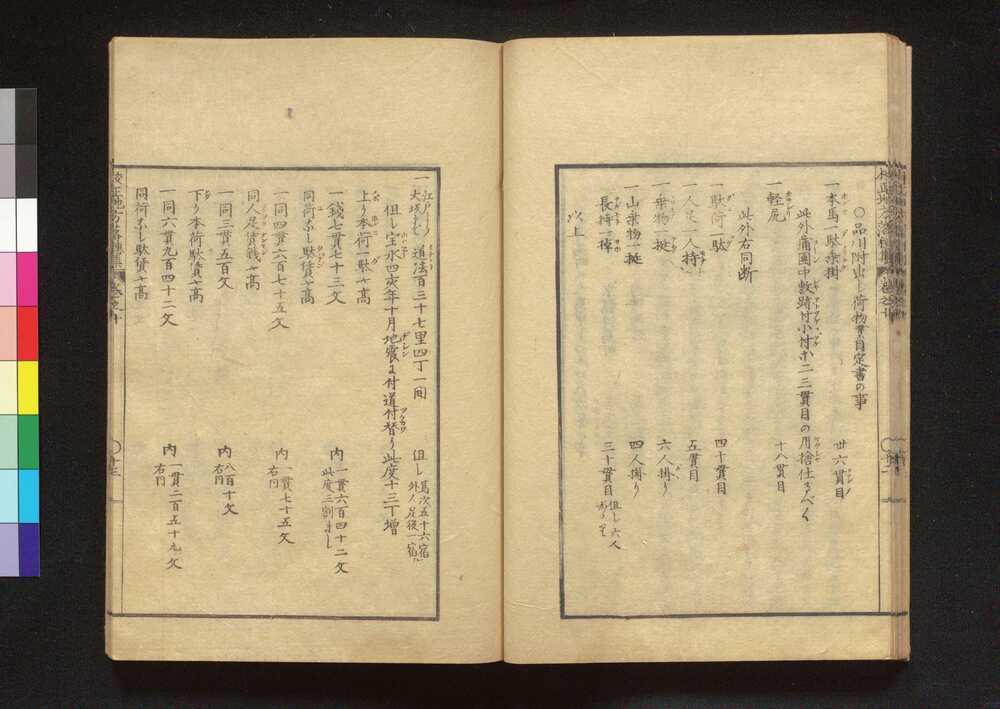 ○品川附出し荷物貫目定書の事
一本馬一駄乗掛 廿六貫目
此外蒲団中敷跡付小付ホ二三貫目の用捨仕るべく
一軽尻 十八貫目
此外右同断
一駄荷一駄 四十貫目
一人足一人持 五貫目
一乗物一挺 六人掛り
一山乗物一挺 四人掛り
長持一棹 三十貫目 但し六人
以上
一江戸より大坂まで道法百三十七里四丁一間 但し
但し宝永四亥年十月地震に付道付替り此度十三丁増
上り本荷一駄に高
一銭七貫七十三文 内 一貫六百四十二文 此度三割まし
同荷なし駄賃高
一同四貫六百七十五文 内 一貫七十五文 右同
同人足賃銭高
一同三貫五百文 内 八百十文 右同
下り本荷駄賃高
一同六貫九百四十二文 内 一貫二百五十九文 右同
同荷なし駄賃高
校正地方落穂集 巻之十 〇十三